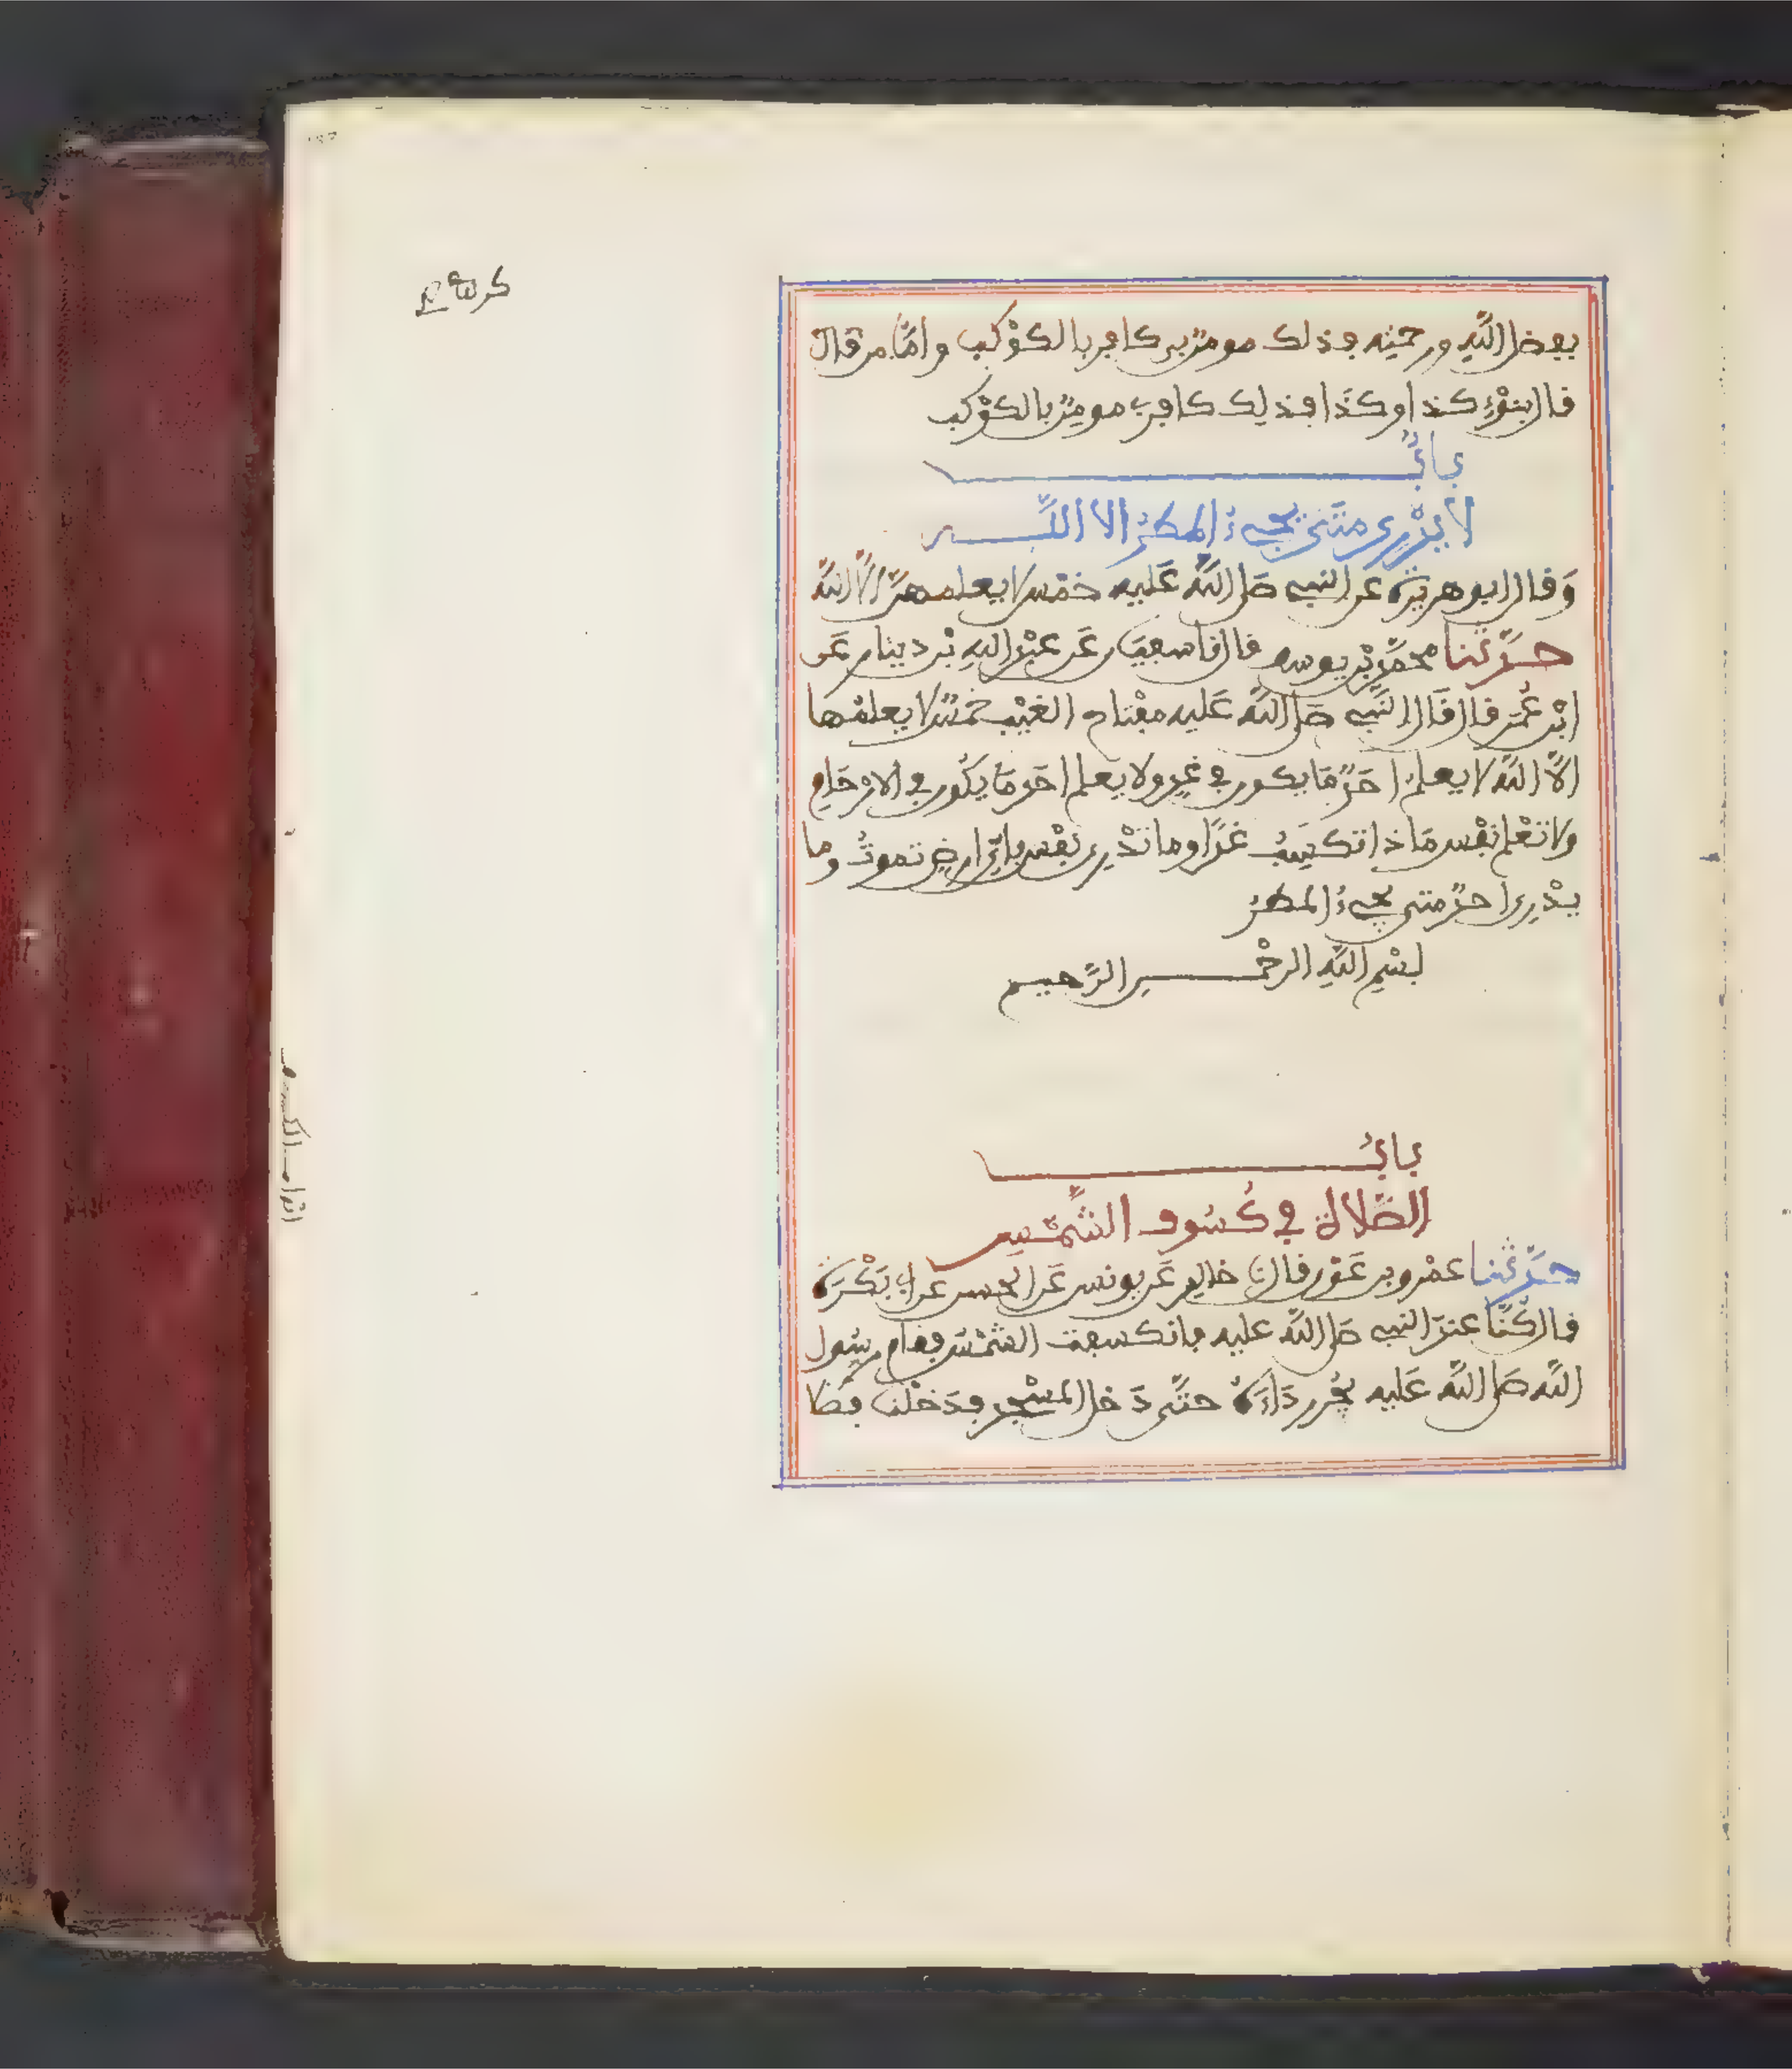 بفضل اللهِ ورحمته فذلك مومن بي كافر بالكوْكب وامّا من قال
قال بنوْءِ كذا وكذا فذلك كافر بي مومن بالكوْكب
بابٌ
لا يدْرِي متَى يجيءُ المطرُ الا اللّه
وَقال ابو هريرة عن النبي صَلى اللهُ عَليه خمْس لا يعلمهنَّ الاَّ اللهُ
حدَّثنا محمّد بْن يوسف قال نا سفيَان عَن عبْد اللهِ بْن دينار عَن
ابْن عُمَر قال قَال النَّبي صَلى اللهُ عَليه مفْتاح الغيْب خمْسٌ لا يعلمُها
الاَّ اللهُ لا يعلمُ احَدٌ مَا يكون في غدٍ ولا يعلم احَد مَا يكُون في الارْحَامِ
ولا تعْلم نفْس مَاذا تكسِبُ غدًا وما تدْرِي نفْس بايِّ ارض تموتُ وما
يدْرِي احدٌ متى يجيءُ المطرُ
بسْمِ اللهِ الرحْمن الرَّحيم
بابُ
الصَّلاة في كُسُوف الشَّمْسِ
حدَّثنا عمْرو بن عَوْن قال نا خالِد عَن يونس عَن الحسن عن ابي بَكْرَة
قال كُنَّا عندَ النبي صَلى اللهُ عليه فانكسفت الشمْسُ فقام رسُول
اللهِ صَلى اللهُ عَليه يجُر رِدَاءَهُ حتَّى دَخل المسْجِد فدَخلْنا فصَلا